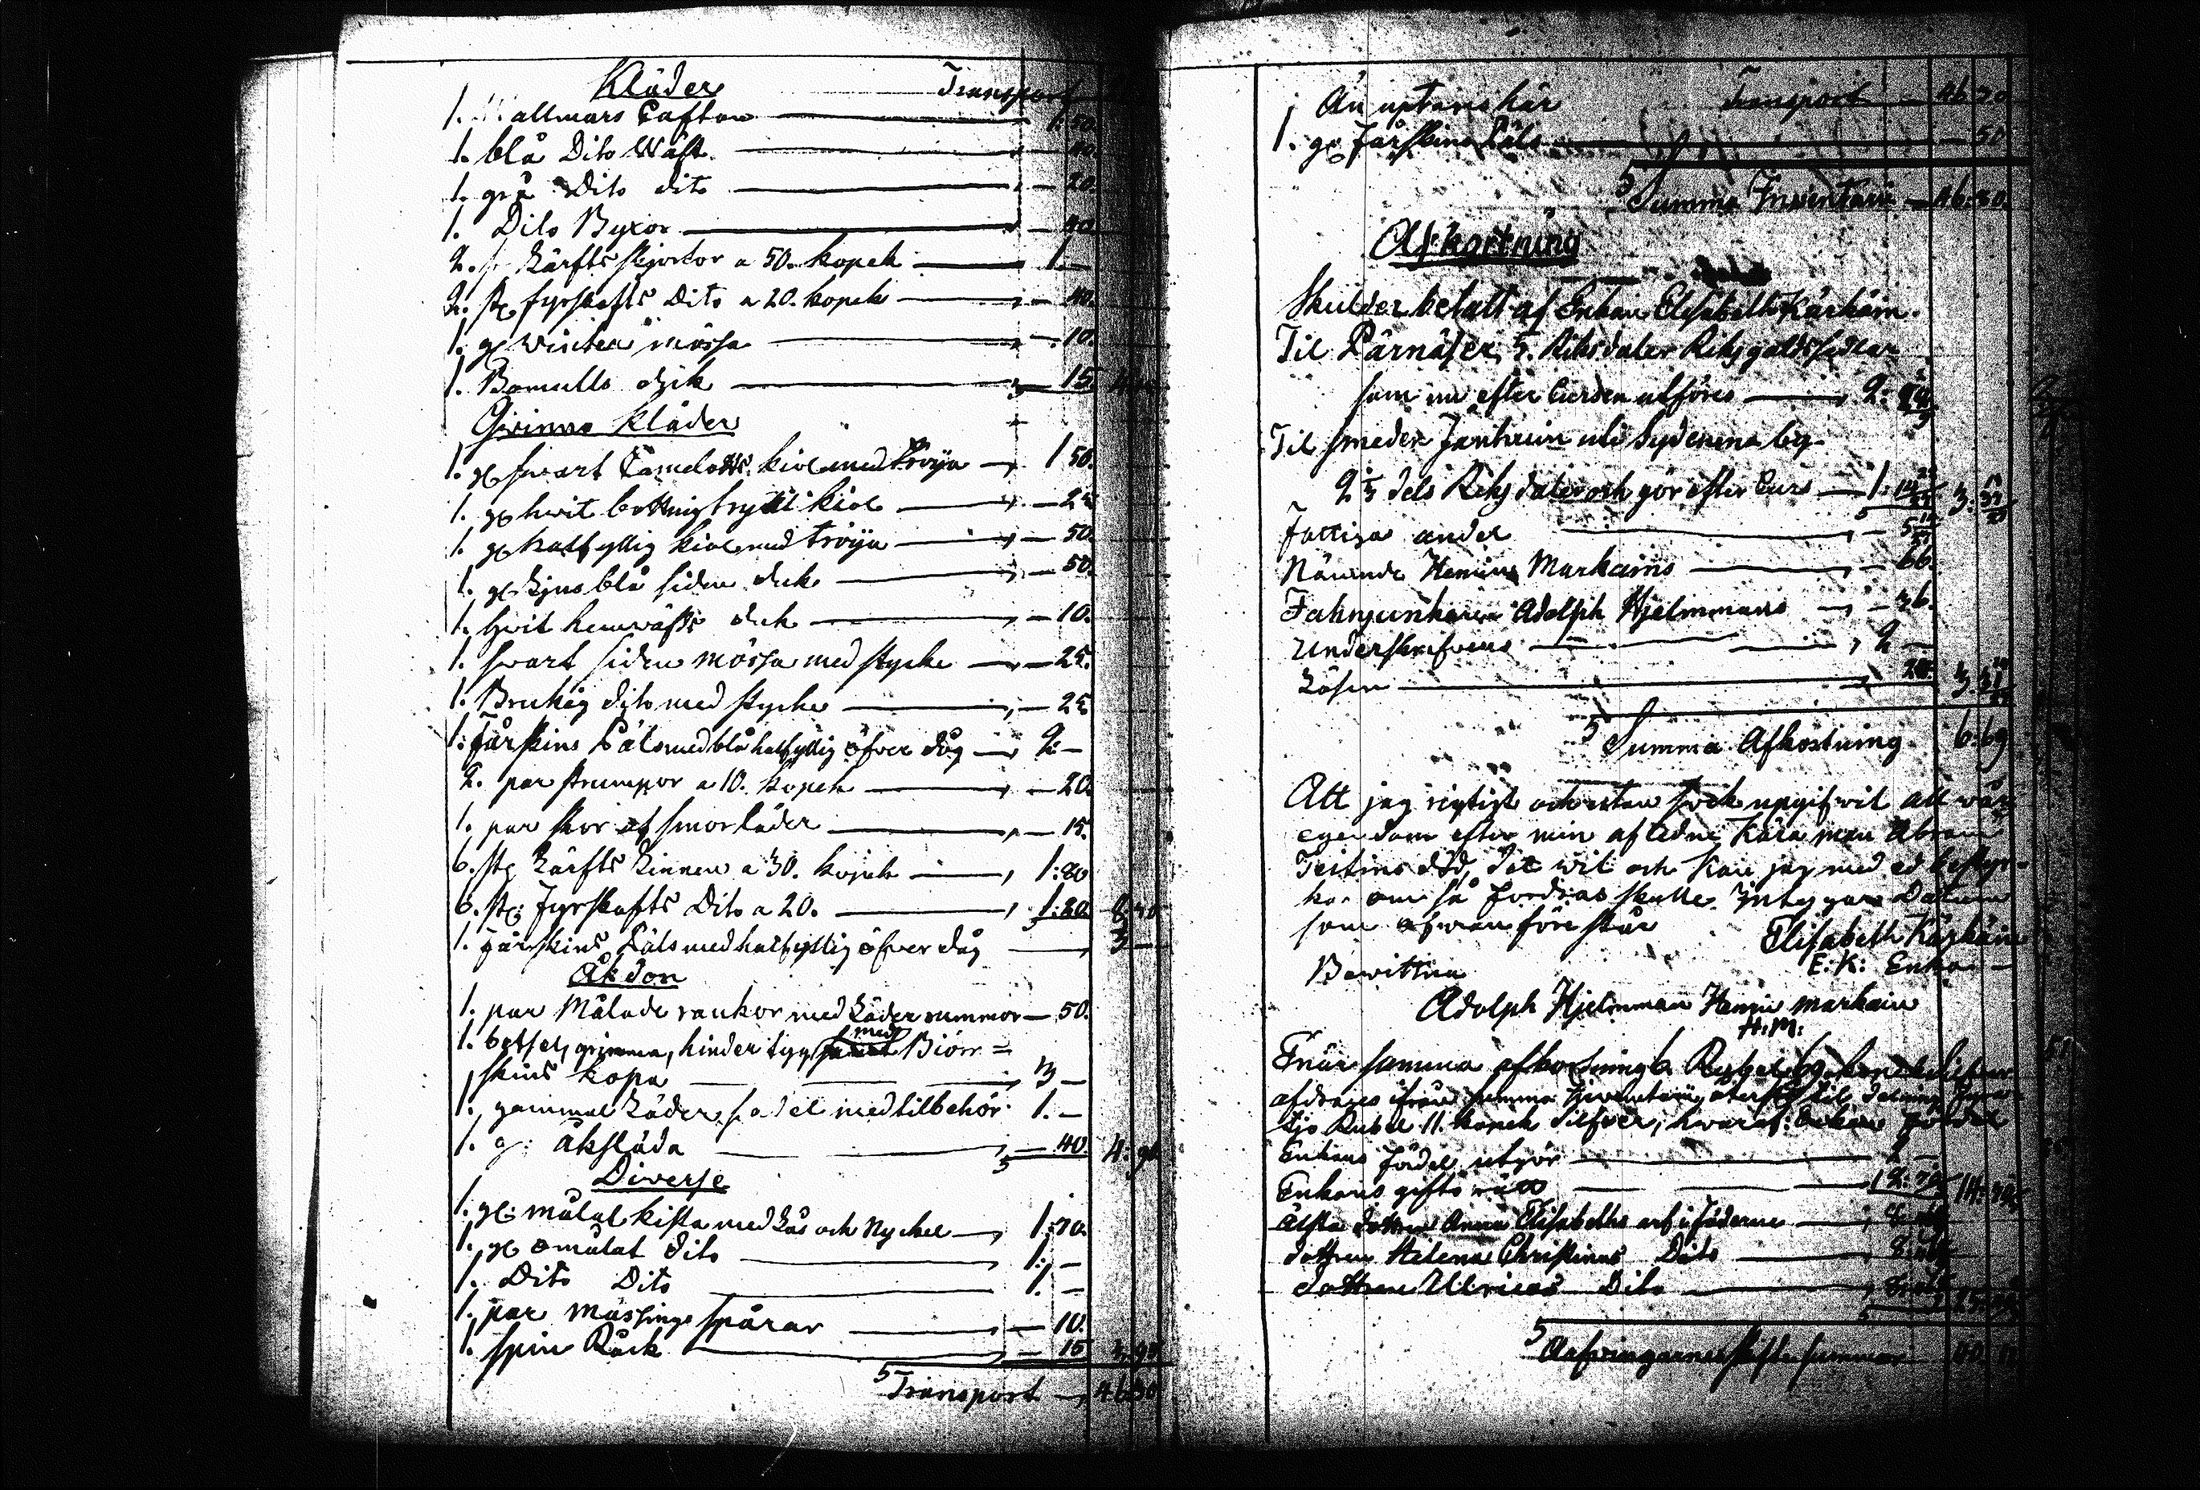 Kläder Transport
1. Wallmars Caftan — 1:50.
1. blå Dito Wäst — 40.
1. grå Dito dito — 20.
1. Dito Byxor — 40
2. st Lärfts skjortor a 50. kopek — 1.—
2. st fyrskafts Dito a 20. kopek — 40.
1. gl winter mössa — 10.
1. Bomulls dyk — 15.
Qwinno Kläder
1. gl swart Camelotts kiol med tröija — 1 50.
1. gl hwit bottnig tryckt kiol — 25
1. gl halfyllig kiol med tröija — 50.
1. gl Ljusblå siden duk — 50.
1. hwit hemväfft duk — 10.
1. swart siden mössa med stycke — 25.
1. Brukig dito med stycke — 25
1. Fårskins Päls med blå halfyllig öfver dåg — 2:—
2. par strumpor a 10. kopek — 20.
1. par skor af smorläder — 15.
6. st Lärfts Linnen a 30. kopek — 1:80
6. st: Fyrskafts Dito a 20. — 1:20. 8:70
1. Fårskins Päls med halfyllig öfver dåg — 3 —
Åkdon
1. par Målade rankor med Läder rummor — 50.
1. betsel, grimma, hindertyg med Biörn=
skins kopa — 3 —
1. gammal Läder sadel med tilbehör. 1.—
1. g: åkslåda — 40. 4:90
Diverse
1. gl: målat kista med Lås och Nyckel — 1:70.
1. gl omålat dito — 1:—
1. Dito Dito — 1.—
1. par mässings spårar — 10.
1. spin Råck — 15 3:95
Transport — 46 30
Än uptans här Transport — 46 30
1. gl fårskins Päls — 50
Summa Inventarii — 46:80.
Afkortning
Skulder betalt af Enkan Elisabeth Kärkäin.
Til Pärnäser, 5. Riksdaler Riksgäldssedlar
som nu efter Cursen utföres — 2:
Til smeden Janhuin uti Sydenma by
2 1/3 dels Riksdaler och gör efter Curs — 1:
Fattiga andel — 5
Nämnde Hemins Markains — 66.
Fahnjunkaren Adolph Hjelmmans — 36.
Underskrifvens — 2 —
Lösen —
Summa Afkortning 6:69
Att jag rigtigt och utan svek upgifvit all vår
egendom efter min afledne kära man Abram
Teitins död, det wil och kan jag med ed bestyr-
ka om så fordras skulle. Intygar Datum
som ofwan föreskår Elisabeth Kärkäin
E: K: Enka —
Bewittna
Adolph Hjelmman Hemin markain
H: M:
När samma afkortning 6 Rubel 69 kopek silfver
afdrages ifrån Summa Inventarii, återstår til delning Fyra
tijo Rubel 11 kopek Silfver, hwaraf. Enkans fördel
Enkans fördel utgör — 2 —
Enkans gifto rätt —
Älsta dottren Anna Elisabeths arf i föderne —
dottren Helena Christinas Dito —
dottren Ulricas Dito —
Arfwingarnes skifte summor — 40. 11